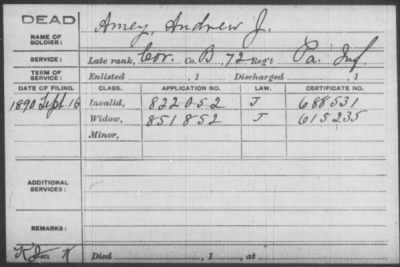 DEAD
NAME OF SOLDIER: Amey, Andrew J.
SERVICE: Late rank, Cor. Co. B, 72 Reg't Pa. Inf.
TERM OF SERVICE: Enlisted , 1 Discharged , 1
DATE OF FILING. CLASS. APPLICATION NO. LAW. CERTIFICATE NO.
1890 Sept. 16 Invalid, 822052 J 688531
Widow, 851852 J 615235
Minor,
ADDITIONAL SERVICES:
REMARKS:
Died , 1 , at